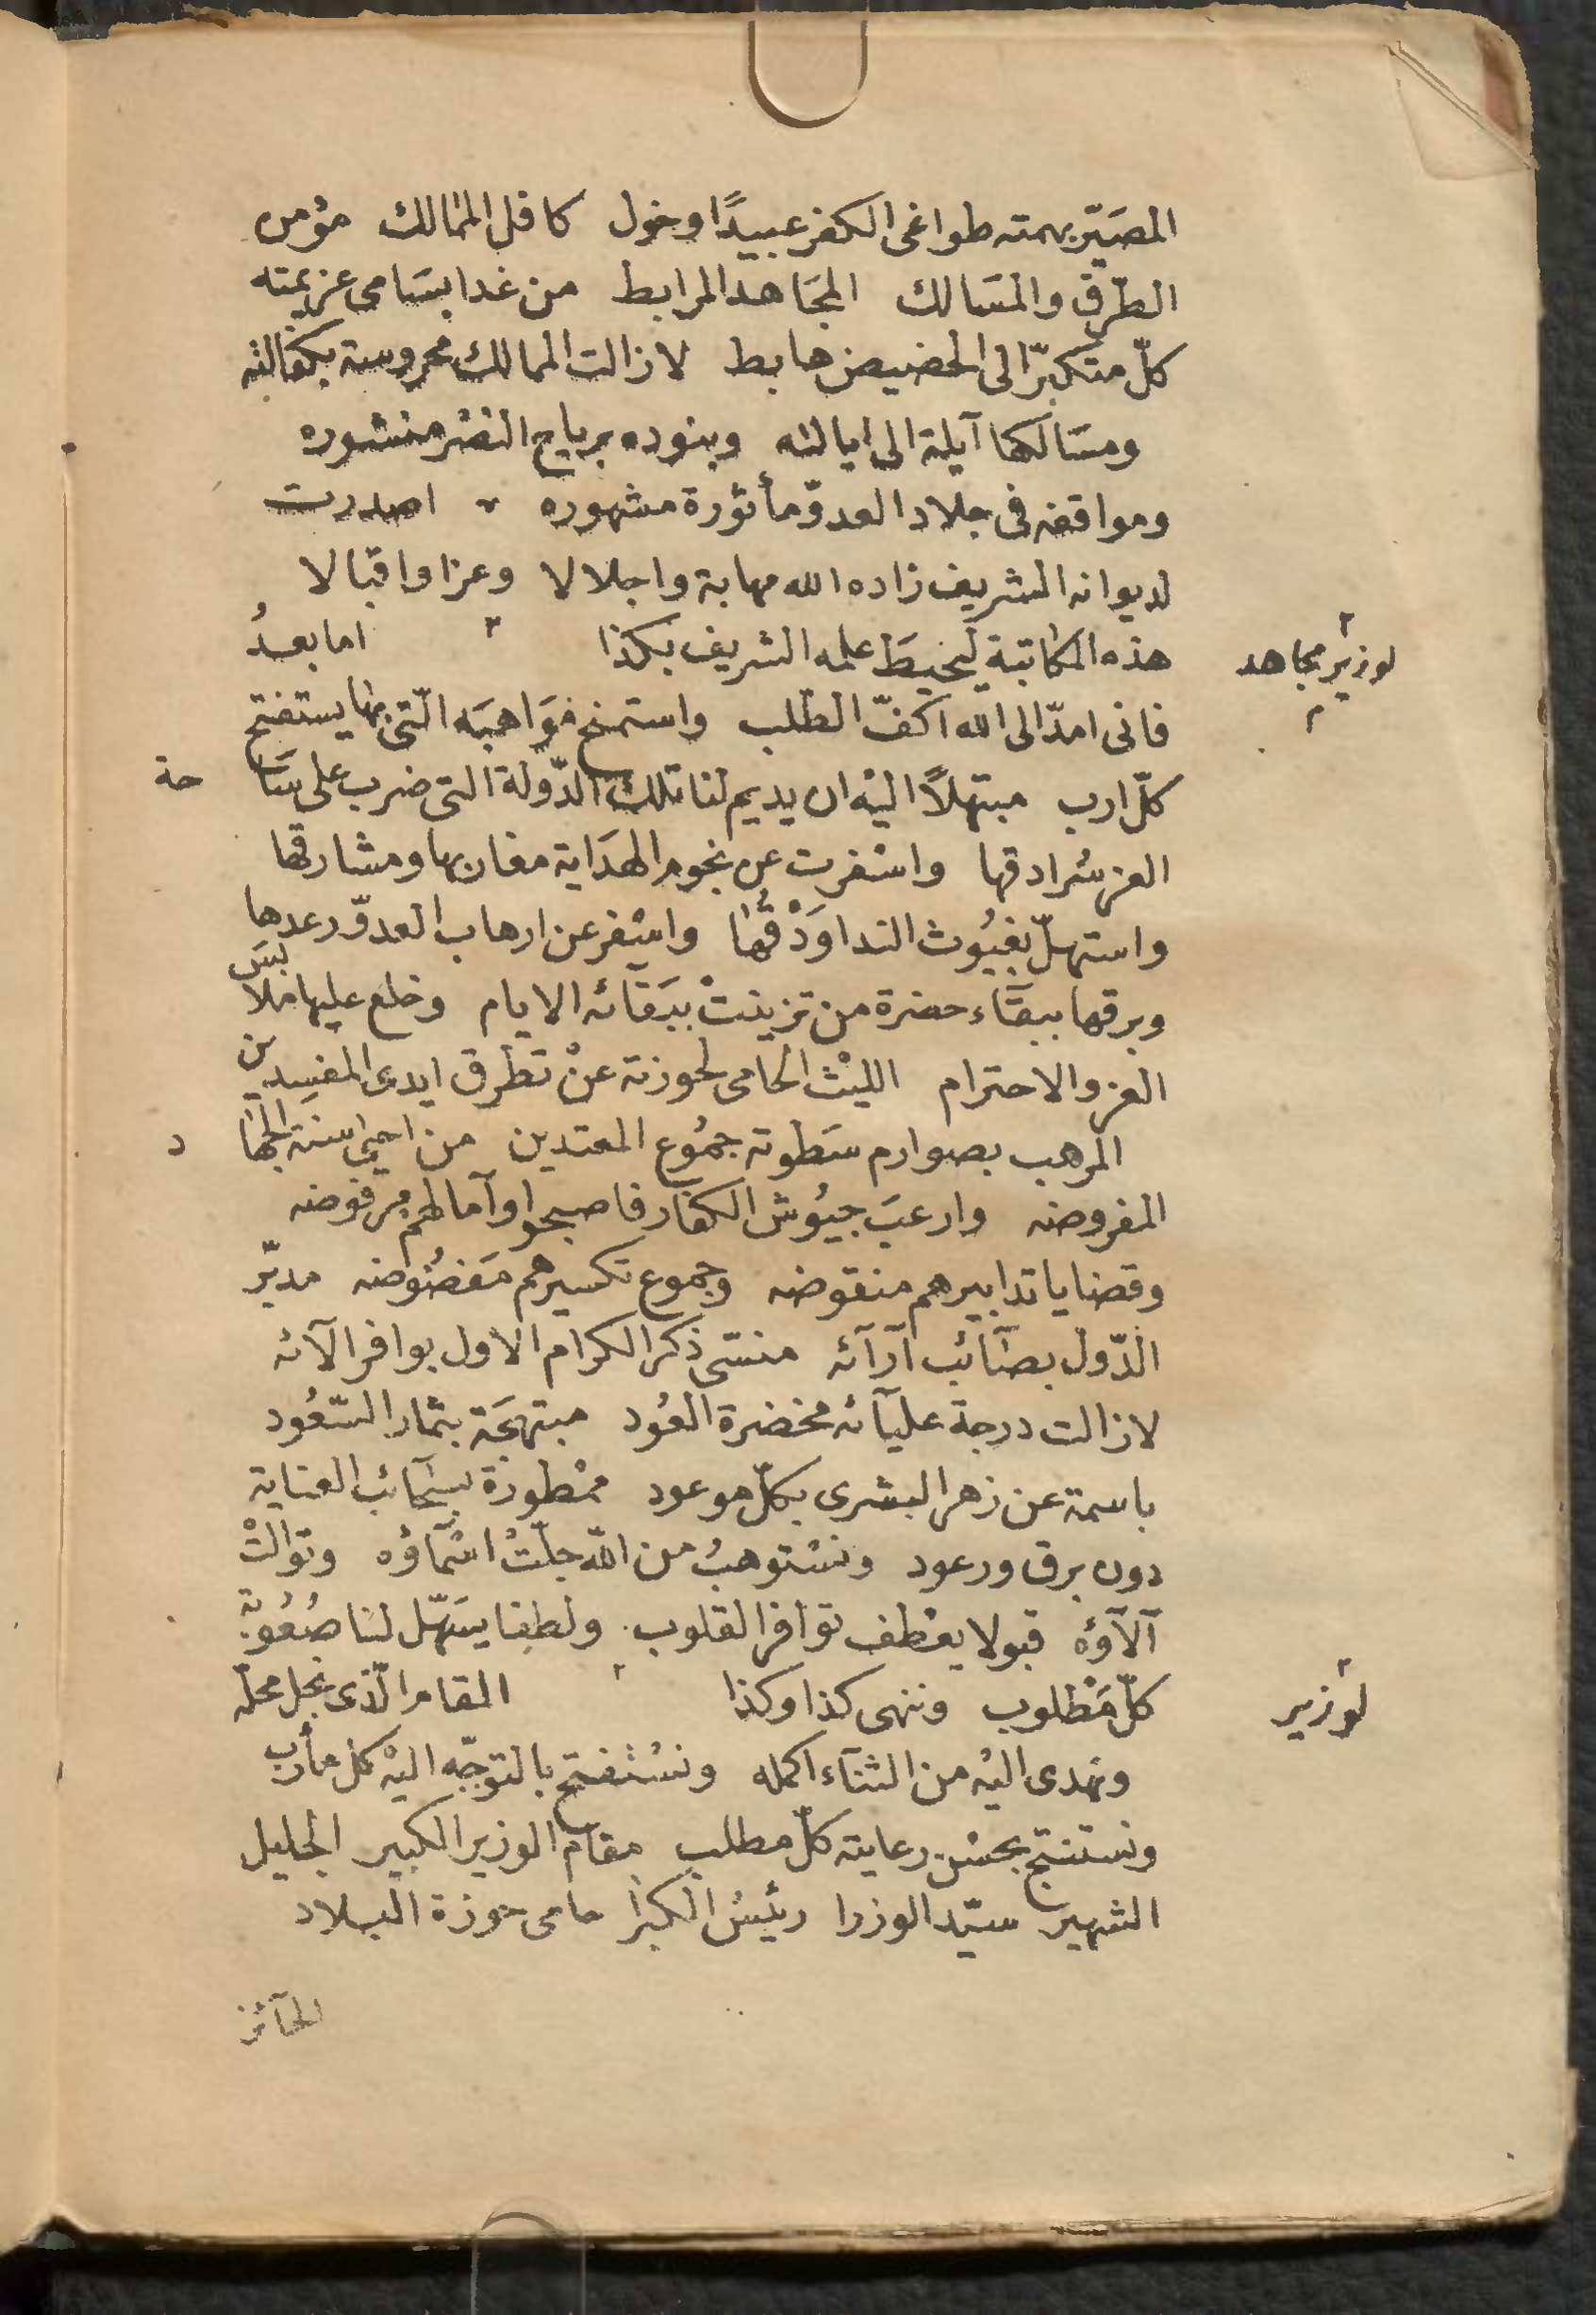 المصَيّر بهمته طواغى الكفر عبيدًا وخول كافل الممالك مؤمن
الطرق والمسَالك المجَاهد المرابط من غدا بسَامى عزيمته
كلّ متكبّر الى الحضيض هابط لازالت الممالك محروسة بكفالته
ومسَالكها آيلة الى ايالته وبنوده برياح النصْر منشوره
ومواقفه فى جلاد العدوّ مأثورة مشهوره اصدرت
لديوانه الشريف زاده الله مهابة واجلالا وعزا واقبالا
لوزير مجاهد
هذه المكاتبة ليحيطَ علمه الشريف بكذا اما بعدُ
فانى امدّ الى الله اكفّ الطلب واستمنح موَاهبَه الّتى بها يستفتح
كلّ ارب مبتهلاً اليْه ان يديم لنا تلك الدّولة التى ضرب على سَاحة
العز سُرادقها واسْفرت عن نجوم الهدَاية مغاربها ومشارقها
واستهلّ بغيُوث الندا وَدْقُها واسْفر عن ارهاب العدوّ رعدها
وبرقها ببقآء حضرة من تزينتْ ببَقآئه الايام وخلع عليها ملابسَ
العز والاحترام الليْث الحامى لحوزته عنْ تطرق ايدى المفسِدين
المرهب بصوارم سَطوته جمُوع المعتدين من احيى سنة الجهاد
المفروضه وارعبَ جيُوش الكفار فاصبحوا وآمالهم مرفوضه
وقضايا تدابيرهم منقوضه وجموع تكسيرهم مَفضُوضه مدبّر
الدّول بصَآئب آرآئه منسّى ذكر الكرام الاول بوافر الآئه
لازالت درجة عليآئه مخضرة العُود مبتهجَة بثمار السّعُود
باسمة عن زهر البشرى بكلّ موعود ممْطورة بسَحآئب العناية
دون برق ورعود ونسْتوهبُ من الله جلّتْ اسْمآؤه وتوالتْ
آلآؤه قبولا يعْطف نوافر القلوب ولطفا يسَهّل لنا صُعُوبة
لوزير
كلّ مَطلوب وننهى كذا وكذا المقام الّذى نجل محلّه
ونهدى اليْه من الثنآء اكمله ونسْتفتح بالتوجّه اليْه كل مأرب
ونستنتج بحسْن رعايته كلّ مطلب مقام الوزير الكبير الجليل
الشهير سيّد الوزرا رئيسُ الكبرا حامى حوزة البلاد